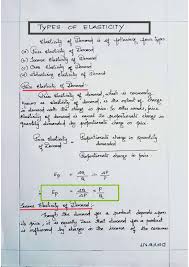 TYPES OF ELASTICITY
Elasticity of Demand is of following four types
(a) Price Elasticity of Demand
(b) Income Elasticity of Demand
(c) Cross Elasticity of Demand
(d) Advertising Elasticity of Demand
Price Elasticity of Demand :
Price Elasticity of Demand, which is commonly
known as elasticity of demand, is the extent of change
in demand with the change in price. In other words, price
Elasticity of demand is equal to proportionate change in
quantity demanded by proportionate change in price.
Price Elasticity = Proportionate change in quantity
of Demand demanded
Proportionate change in price
Income Elasticity of Demand :
Though the demand for a product depends upon
its price, it is equally true that demand for a product
is influenced by changes in the income of the consumer